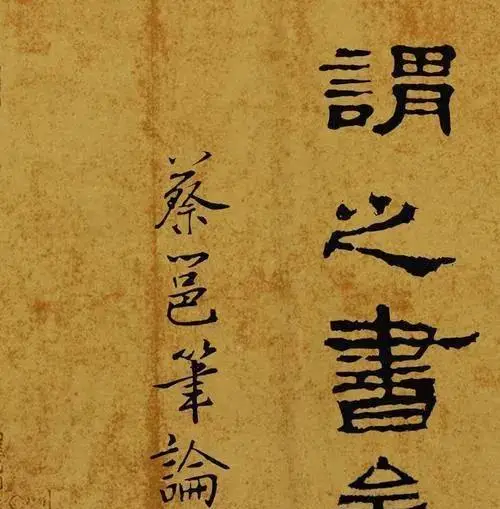 謂之書矣
蔡邕筆論